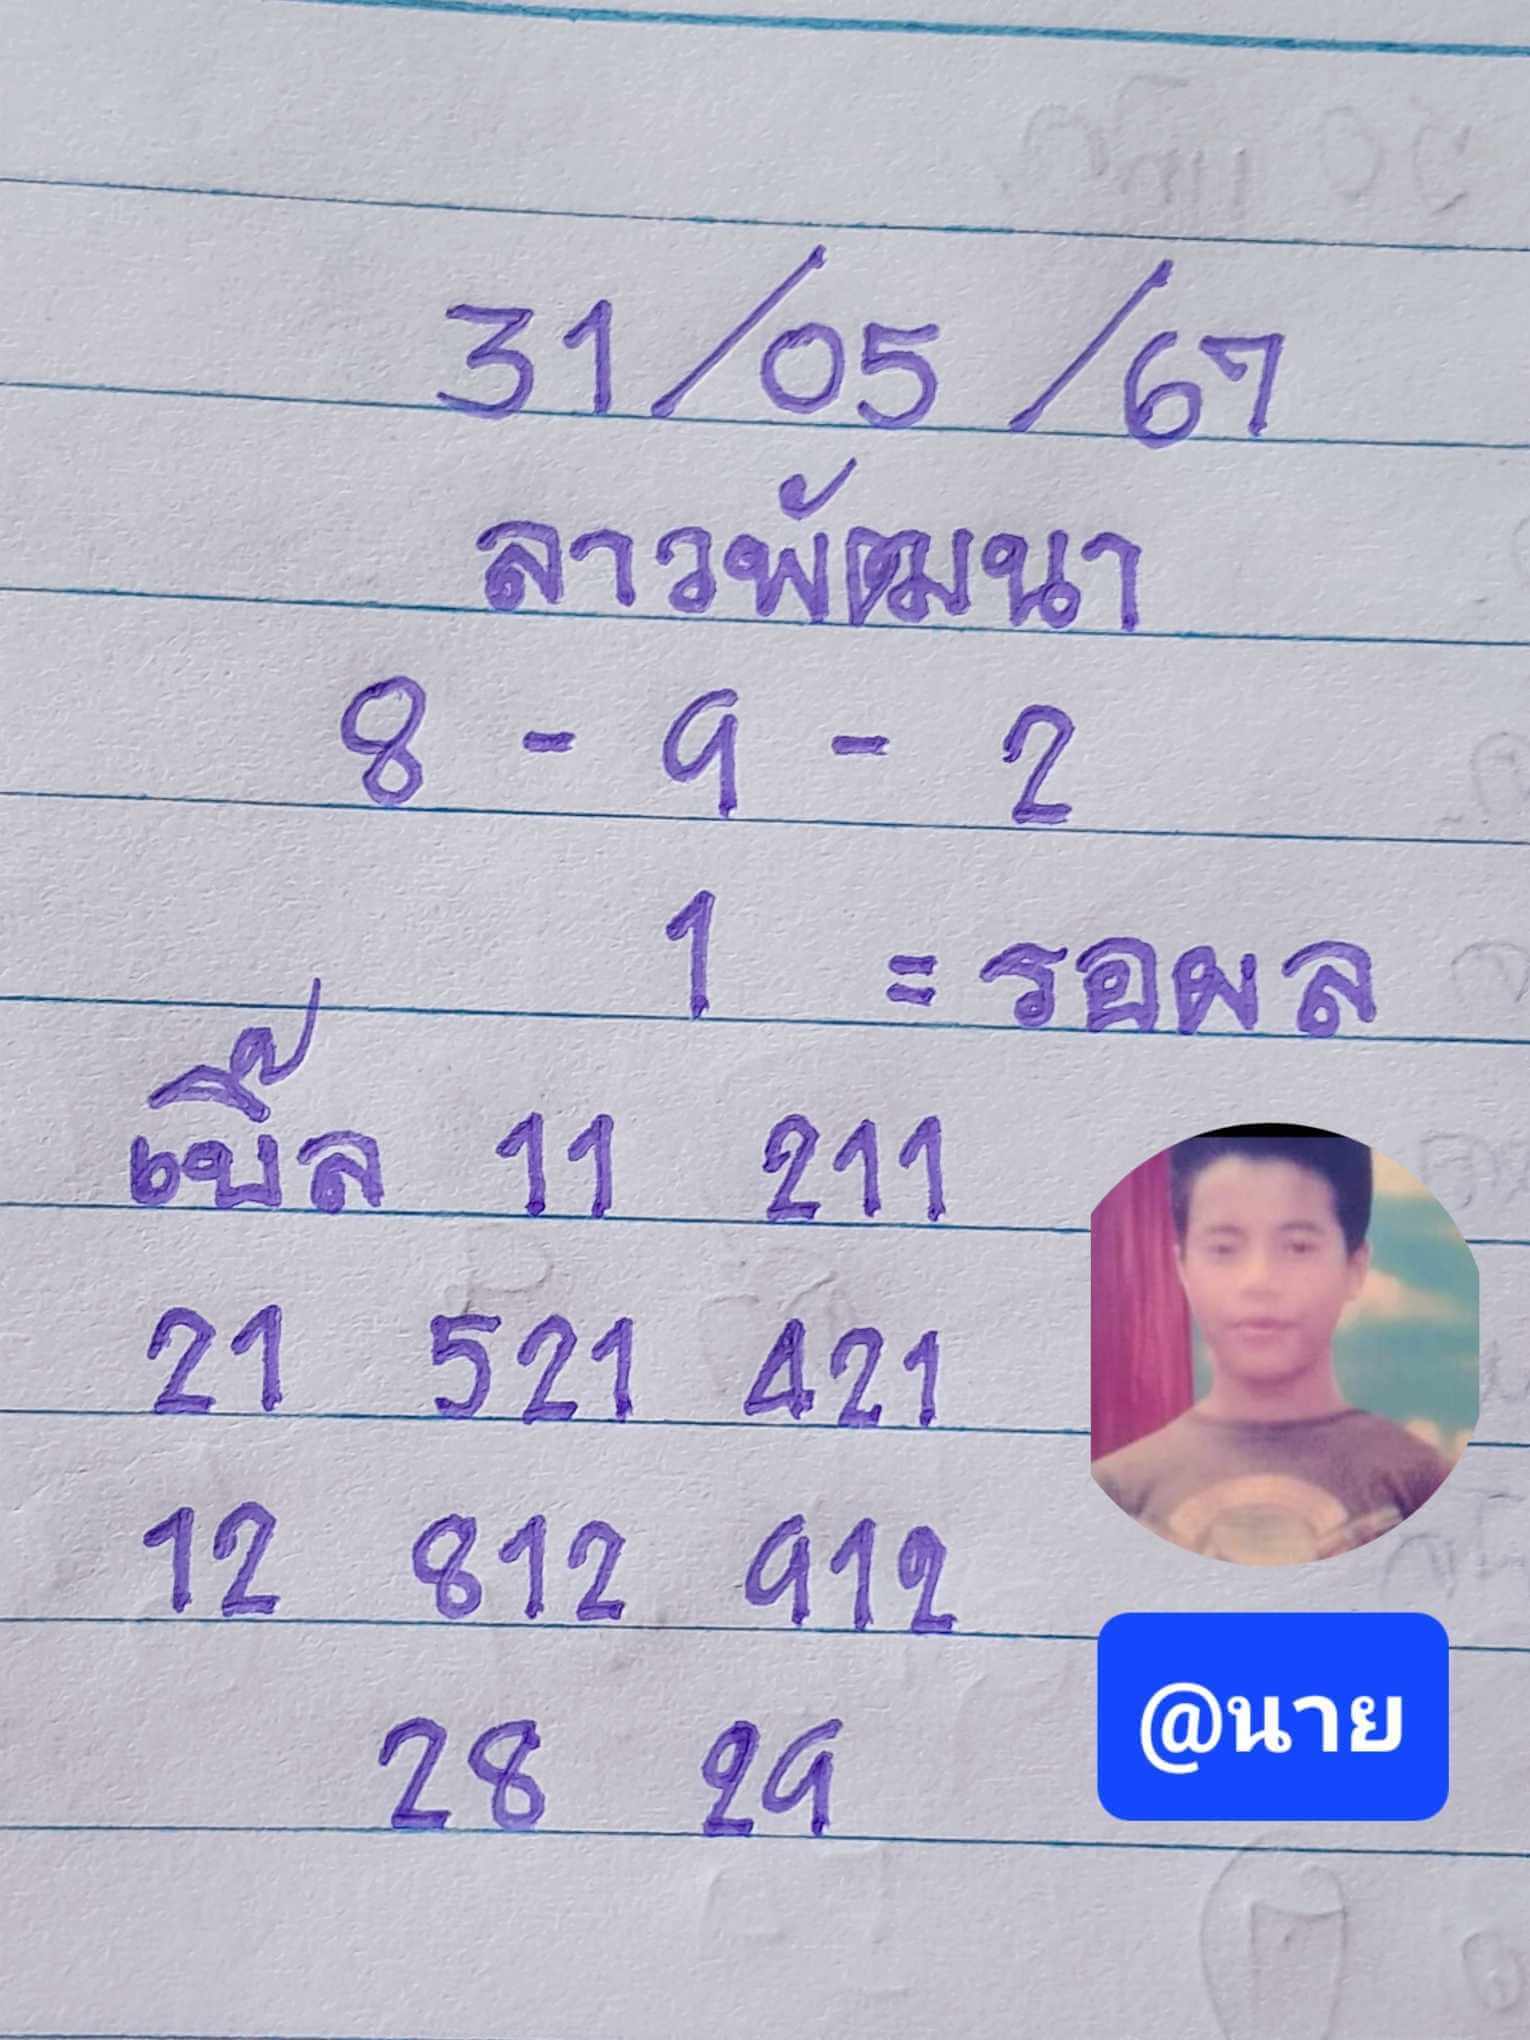 31/05/67
ลาวพัฒนา
8 - 9 - 2
1 = รอผล
เบิ้ล 11 211
21 521 421
12 812 912
28 29
@นาย